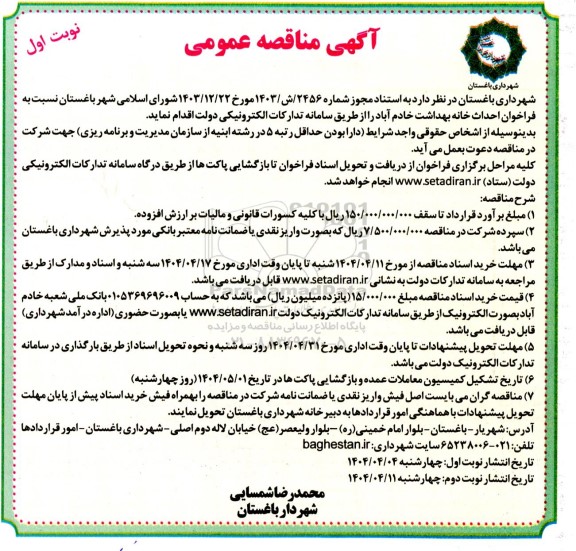 آگهی مناقصه عمومی
نوبت اول
شهرداری باغستان
شهرداری باغستان در نظر دارد به استناد مجوز شماره ۲۴۵۶/ش/۱۴۰۳ مورخ ۱۴۰۳/۱۲/۲۲ شورای اسلامی شهر باغستان نسبت به
فراخوان احداث خانه بهداشت خادم آباد را از طریق سامانه تدارکات الکترونیکی دولت اقدام نماید.
بدینوسیله از اشخاص حقوقی واجد شرایط (دارا بودن حداقل رتبه ۵ در رشته ابنیه از سازمان مدیریت و برنامه ریزی) جهت شرکت
در مناقصه دعوت بعمل می آید.
کلیه مراحل برگزاری فراخوان از دریافت و تحویل اسناد فراخوان تا بازگشایی پاکت ها از طریق درگاه سامانه تدارکات الکترونیکی
دولت (ستاد) www.setadiran.ir انجام خواهد شد.
شرح مناقصه:
۱) مبلغ برآورد قرارداد تا سقف ۱۵۰/۰۰۰/۰۰۰/۰۰۰ ریال با کلیه کسورات قانونی و مالیات بر ارزش افزوده.
۲) سپرده شرکت در مناقصه ۷/۵۰۰/۰۰۰/۰۰۰ ریال که بصورت واریز نقدی یا ضمانت نامه معتبر بانکی مورد پذیرش شهرداری باغستان
می باشد.
۳) مهلت خرید اسناد مناقصه از مورخ ۱۴۰۴/۰۴/۱۱ شنبه تا پایان وقت اداری مورخ ۱۴۰۴/۰۴/۱۷ سه شنبه و اسناد و مدارک از طریق
مراجعه به سامانه تدارکات دولت به نشانی www.setadiran.ir قابل دریافت می باشد.
۴) قیمت خرید اسناد مناقصه مبلغ ۱۵/۰۰۰/۰۰۰ (پانزده میلیون ریال) می باشد که به حساب ۰۱۰۵۳۶۹۶۹۶۰۰۹ بانک ملی شعبه خادم
آباد بصورت الکترونیک از طریق سامانه تدارکات الکترونیک دولت www.setadiran.ir یا بصورت حضوری (اداره درآمد شهرداری)
قابل دریافت می باشد.
۵) مهلت تحویل پیشنهادات تا پایان وقت اداری مورخ ۱۴۰۴/۰۴/۳۱ روز سه شنبه و نحوه تحویل اسناد از طریق بارگذاری در سامانه
تدارکات الکترونیک دولت می باشد.
۶) تاریخ تشکیل کمیسیون معاملات عمده و بازگشایی پاکت ها در تاریخ ۱۴۰۴/۰۵/۰۱ (روز چهارشنبه)
۷) مناقصه گران می بایست اصل فیش واریز نقدی یا ضمانت نامه شرکت در مناقصه را بهمراه فیش خرید اسناد پیش از پایان مهلت
تحویل پیشنهادات با هماهنگی امور قراردادها به دبیرخانه شهرداری باغستان تحویل نمایند.
آدرس: شهریار - باغستان - بلوار امام خمینی(ره) – بلوار ولیعصر(عج) خیابان لاله دوم اصلی - شهرداری باغستان - امور قراردادها
تلفن: ۰۲۱-۶۵۲۳۸۰۰۶ سایت شهرداری: baghestan.ir
تاریخ انتشار نوبت اول: چهارشنبه ۱۴۰۴/۰۴/۰۴
تاریخ انتشار نوبت دوم: چهارشنبه ۱۴۰۴/۰۴/۱۱
محمدرضا شمسایی
شهردار باغستان